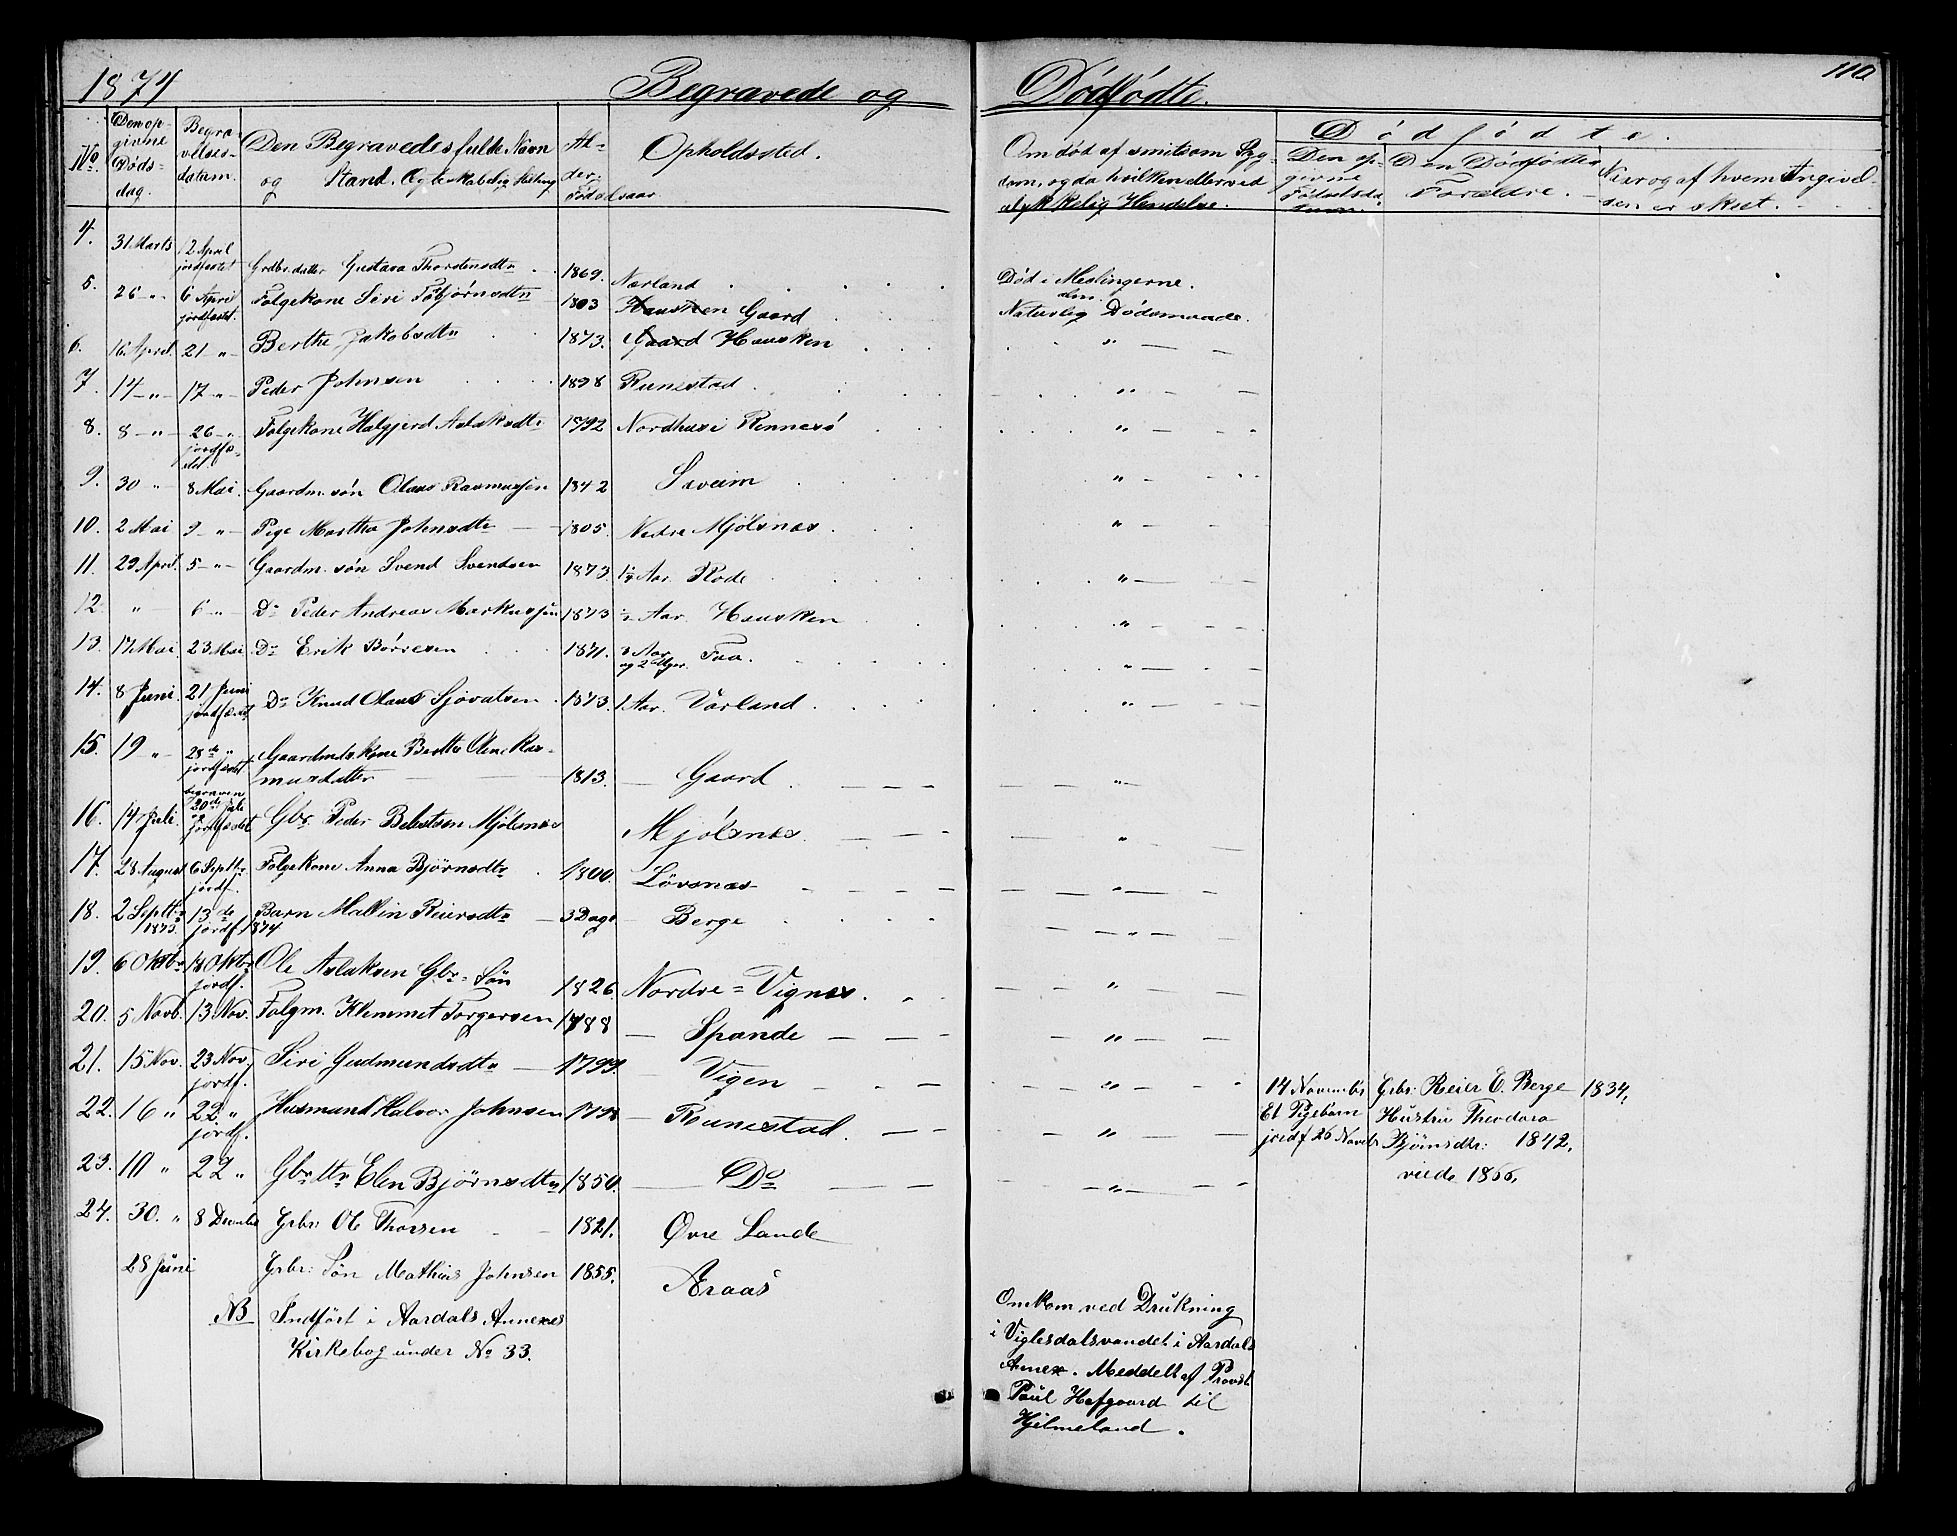 1874 Begravede og Dødfødte. 110
No. Den opgivne Dødsdag. Begravelsesdatum. Den Begravedes fulde Navn og Stand, Alder. Fødselsaar Opholdssted. Om død af smitsom Syg-
dom, og da hvilken eller ved
ulykkelig Hendelse.
Dødfødte.
Den opgivne Fødsels Den Dødfødtes Forældre. Naar og af hvem Angivel-
sen er skeet.
4. 31 Marts 12 April jordfæstet Grdbr. datter Gustava Thorstensdtr 1869. Nærland Død i Meslingerne.
5. 26 " 6 April jordfæstet. Følgekone Siri Torbjørnsdtr 1803 Hausken Gaard Naturlig Dødsmaade.
6. 16 April. 21 " Berthe Jakobsdtr 1873. Gaard Hausken "
7. 14 " 17 " Peder Johnsen 1898 Runestad "
8. 8 " 26 " jordfæ-
stet. Følgekone Halgjerd Aslaksdtr 1792 Nordhus i Rennesø "
9. 30 " 8 Mai. Gaardm. søn Olaus Rasmussen 1842 Sæveim "
10. 2 Mai 9 " Pige Martha Johnsdtr 1805. Nedre Mjølsnæs "
11. 29 April. 5 " Gaardm. søn Svend Svendsen 1873. 1½ Aar Rode "
12. " 6 " Do Peder Andreas Markussen 1873 ½ Aar Hausken "
13. 17 Mai. 23 Mai Do Erik Børresen 1871. 3 Aar
og 2 Mgr. Faa. "
14. 8 Juni. 21 Juni jordfæstet Do Knud Olaus Sjovatsen 1873. 1 Aar. Varland "
15. 19 " 28de " jordfæstet Gaardmds. kone Berthe Oline Ras-
musdatter 1813. Gaard "
16. 14 Juli. begraven 20de Juli og jordfæstet Gbr. Peder Mjølsnæs Mjølsnæs "
17. 28 August 6 Septbr jordf. Følgekone Anna Bjørnsdtr 1800. Løvsnæs "
18. 2 Septbr 1873. 13de jordf. 1874 Barn Mallin Reiersdtr 3 Dage Berge "
19. 6 Oktbr 18 Oktbr jordf. Ole Aslaksen Gbr. Søn 1826. Nordre Vignes. "
20. 5 Novb. 13 Nov. Følgm. Klemmet Torgersen 1788 Spande "
21. 15 Nov. 23 Nov. jordf. Siri Gudmundsdtr 1799. Vigen "
22. 16 " 22 " jordf. Husmund Halvor Johnsen 1798 Runestad. "
14 Novembr Grbr. Reier E. Berge 1834,
Et Pigebarn Hustru Theodora
jordf 26 Novebr Bjørnsdtr: 1842.
viede 1866,
23. 10 " 22 " Gbr dtr Elen Bjørnsdtr 1850. Do "
24. 30. " 8 Decmber Grbr: Ole Thorsen 1821. Øvre Lande
28 Juni Grbr: Søn Mathias Johnsen 1855. Araas
NB Indført i Aardals Annexes
Kirkebog under No 33.
Omkom ved Drukning
i Viglesdalsvandet i Aardals
Annex. Meddelt af Provst
Paul Hofgaard til
Hjelmeland.